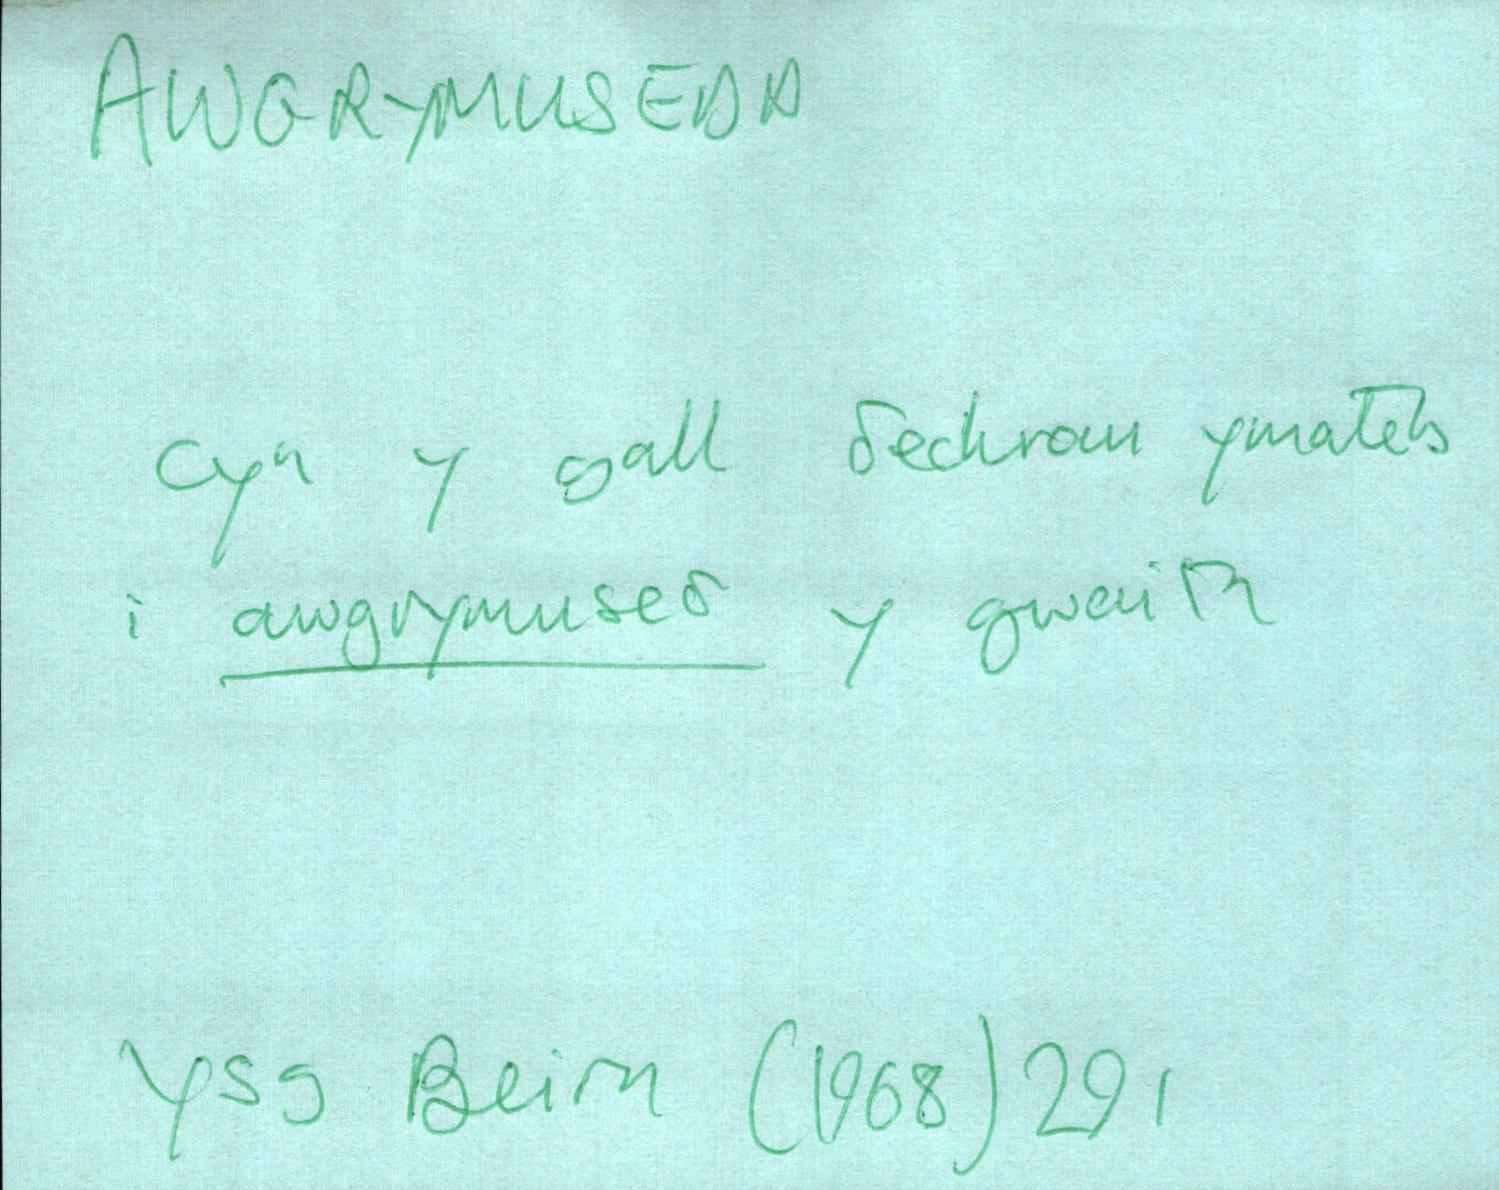 AWGRYMUSEDD
Cyn y gall δechrau ymateb
i awgrymuseδ y gwaith
Ysg Beirn (1968) 291